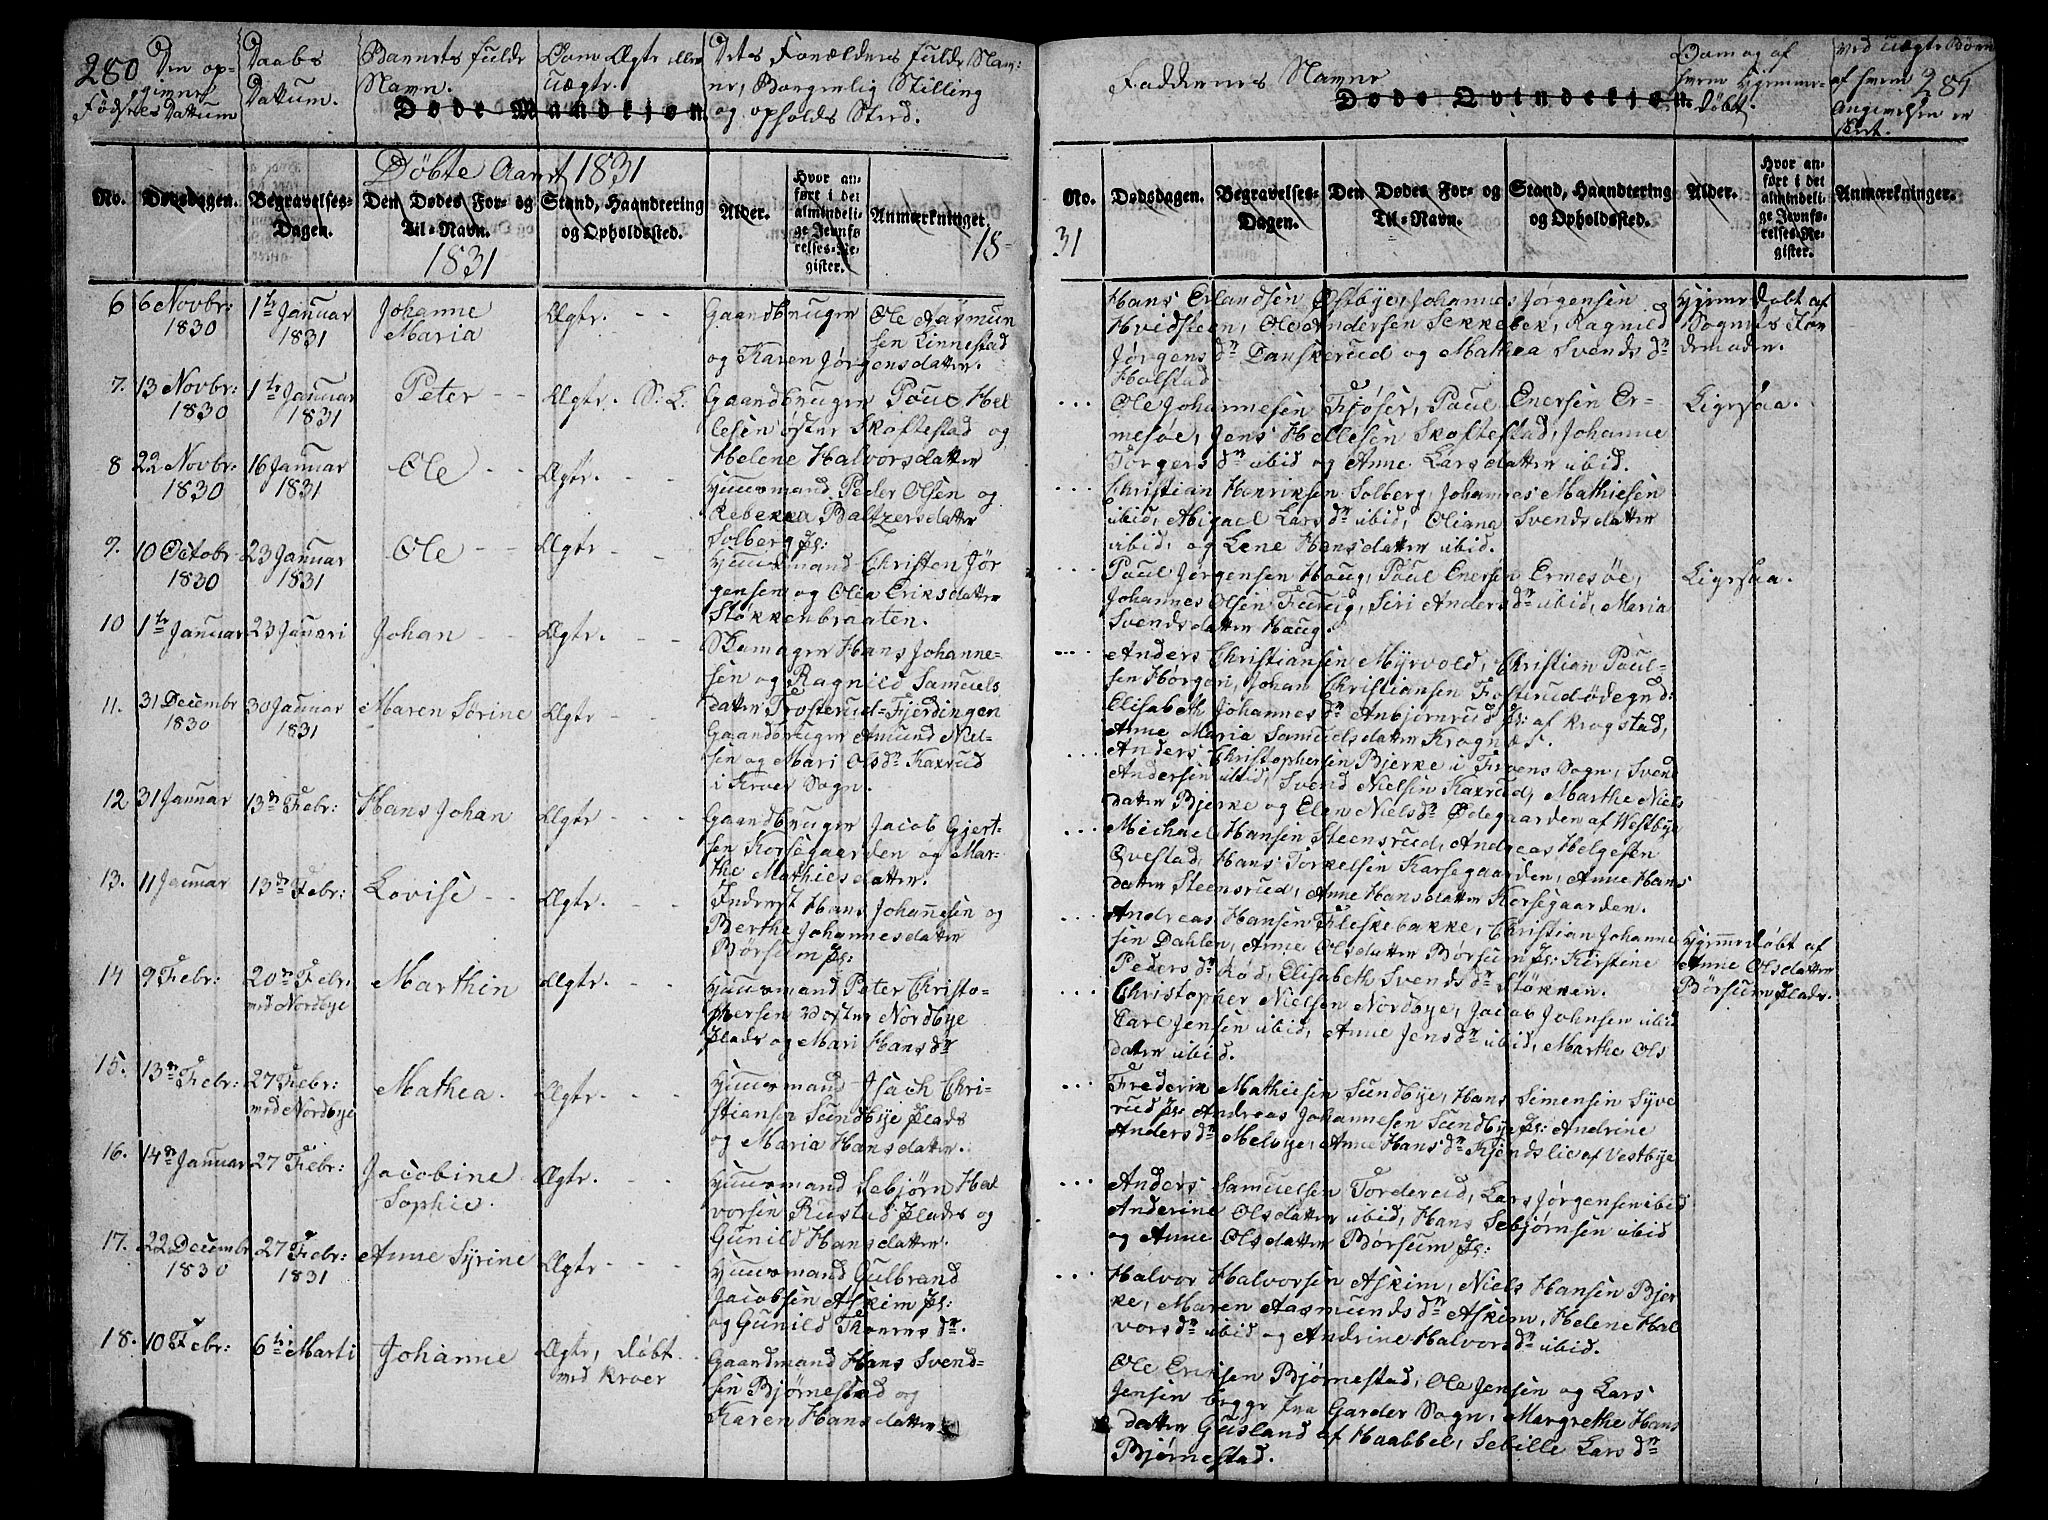 280
Den op-
givenes
Fødsels Dattum
Daabs
Dattum.
Barnets fulde
Navn.
Om Ægte eller
Uægte.
Dets Forældres fulde Nav-
ne, Borgerlig Stilling
og opholds Sted.
Døde Mandkjøn.
Døbte Aaret 1831
No.
Dødsdagen.
Begravelses-
Dagen.
Den Dødes For- og
Til-Navn.
Stand, Haandtering
og Opholdssted.
Alder.
Hvor an-
ført i det
almindeli-
ge Jevnfø-
relses-Re-
gister.
Anmærkninger.
1831
18
6
6 Novbr:
1830
1te Januar
1831
Johanne
Maria
Ægte. - -
Gaardbruger Ole Aasmun
sen Linnestad
og Karen Jørgensdatter.
7.
13 Novbr:
1830
1te Januar
1831
Peter - -
Ægte. S: L.
Gaardbruger Poul Hel-
lesen øster Skoftestad og
Helene Halvorsdatter
8
22 Novbr:
1830
16 Januar
1831
Ole - -
Ægte. - -
Huusmand Peder Olsen og
Rebekka Baltzersdatter
Solberg Pl:
9.
10 Octobr
1830
23 Januar
1831
Ole - -
Ægte - -
Huusmand Christen Jør
gensen og Olea Eriksdatter
Støkkenbraaten.
10
1te Januar
23 Januari
Johan - -
Ægte. - -
Skomager Hans Johanne-
sen og Ragnild Samuels
datter Frosterud-Fjerdingen
11.
31 Decembr
1830
30 Januar
1831
Maren Sørine
Ægte - -
Gaardbruger Amund Niel-
sen og Mari Olsdr Kaxrud
i Kroer Sogn.
12
31 Januar
13de Febr:
Hans Johan
Ægte - - -
Gaardbruger Jacob Gjert-
sen Korsegaarden og Mar-
the Mathiesdatter.
13.
11 Januar
13de Febr:
Lovise - -
Ægte. - -
Inderst Hans Johannesen og
Berthe Johannesdatter
Børsum Pl:
14
9 Febr:
20de Febr:
med Nordbye
Marthin
Ægte. - -
Huusmand Peter Christo-
phersen Voster Nordbye
Plads og Mari Hansdr
15.
13de Febr:
27 Febr:
med Nordbye
Mathea.
Ægte. - -
Huusmand Isach Chri-
stiansen Sundbye Plads
og Maria Hansdatter.
16.
14de Januar
27 Febr:
Jacobine
Sophie.
Ægte. - -
Huusmand Sebjørn Hal
vorsen Rustad Plads og
Gunild Hansdatter.
17.
22 Decembr
1830
27 Febr:
1831
Anne Syrine
Ægte - - -
Huusmand Gulbrand
Jacobsen Askim Pl:
og Gunild Thoresdr.
18.
10 Febr:
6te Marti
Johanne
Ægte, døbt
med Kroer
Gaardmand Hans Svend-
sen Bjørnestad og
Karen Hansdatter
Faddernes Navne
Døde Qvindekjøn.
Om og af
hvem hjemme-
døbt.
Ved Uægte Børn
af hvem
Angivelsen er
skeet.
281
No.
Dødsdagen.
Begravelses-
Dagen.
Den Dødes For- og
Til-Navn.
Stand, Haandtering
og Opholdssted.
Alder.
Hvor an-
ført i det
almindeli-
ge Jevnfø-
relses-Re-
gister.
Anmærkninger.
31
Hans Erlandsen Østbye, Johannes Jørgensen
Hvidsteen, Ole Andersen Sekkebek, Ragnild
Jørgensdr Danskerud og Mathea Svendsdr
Holstad
Hjemedøbt af
Sognets Jor
demoder.
Ole Johannesen Fjøser, Poul Enersen Er-
mesøe, Jens Hellesen Skoftestad, Johanne
Torgersdr ibid og Anne Larsdatter ibid.
Ligesaa.
Christian Henriksen Solberg, Johannes Mathiesen
ibid, Abigael Larsdr ibid, Oliana Svendsdatter
ibid, og Lene Hansdatter ibid.
Poul Jørgensen Haug, Poul Enersen Ermesøe,
Johannes Olsen Furuig, Siri Andersdr ibid, Maria
Svendsdatter Haug.
Ligesaa.
Anders Christiansen Myrvold, Christian Poul-
sen Horgen, Johan Christiansen Frosterudødegrd:
Elisabeth Johannesdr Anbjørnrud Pl: af Krogstad,
Anne Maria Samuelsdatter Krognæs.
Anders Christophersen Bjerke i Froens Sogn, Svend
Andersen ibid, Svend Nielsen Kaxrud, Marthe Niels
datter Bjerke og Elen Nielsdr Ødegaarden af Westbye
Michael Hansen Steensrud, Andreas Helgesen
Qvestad, Hans Torkelsen Korsegaarden, Anne Hans
datter Steensrud, Anne Hansdatter Korsegaarden.
Andreas Hansen Fleskebakke, Christian Johanne
sen Dahlen, Anne Olsdatter Børsum Pl: Kirstine
Pedersdr Rød, Elisabeth Svendsdr Støkken.
Hjemmedøbt af
Anne Olsdatter
Børsum Plads.
Christopher Nielsen Nordbye, Jacob Johnsen ibid
Carl Jensen ibid, Anne Jensdr ibid, Marthe Ols
datter ibid.
Frederik Mathiesen Sundbye, Hans Simensen Syve
rud Pl: Andreas Johannesen Sundbye Pl: Andrine
Andersdr Melbye, Anne Hansdr Kjendslie af Vestbye
Anders Samuelsen Torderud, Lars Jørgensen ibid
Anderine Olsdatter ibid, Hans Sebjørnsen ibid
og Anne Olsdatter Børsum Pl:
Halvor Halvorsen Askim, Niels Hansen Bjer
ke, Maren Aasmundsdr Askim, Helene Hal
vorsdr ibid og Andrine Halvorsdr ibid.
Ole Eriksen Bjørnestad, Ole Jensen og Lars
Jensen begge fra Garder Sogn, Margrethe Hans
datter Gusland af Haabbel, Sebille Larsdr
Bjørnestad.